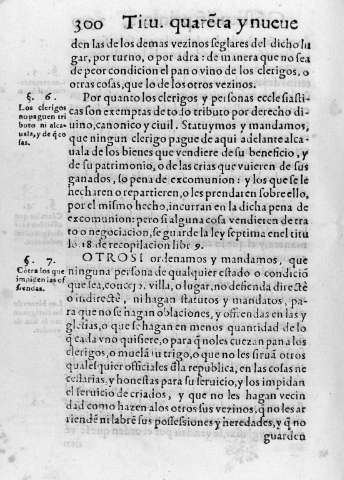 300 Titu. quarēta y nueue
den las de los demas vezinos seglares del dicho lu
gar, por turno, o por adra: de manera que no sea
de peor condicion el pan o vino de los clerigos, o
otras cosas, que lo de los otros vezinos.
§. 6.
Los clerigos
no paguen tri
buto ni alca-
uala, y de q̄ co
sas.
Por quanto los clerigos y personas ecclesiasti-
cas son exemptas de todo tributo por derecho di-
uino, canonico y ciuil. Statuymos y mandamos,
que ningun clerigo pague de aqui adelante alca-
uala de los bienes que vendiere de su beneficio, y
de su patrimonio, o de las crias que vuieren de sus
ganados, so pena de excomunion: y los que se lo
hecharen o repartieren, o les prendaren sobre ello,
por el mismo hecho, incurran en la dicha pena de
excomunion: pero si alguna cosa vendieren de tra
to o negociacion, se guarde la ley septima en el titu
lo. 18. de recopilacion libr. 9.
§. 7.
Cōtra los que
impiden las of
frendas.
OTROSI ordenamos y mandamos, que
ninguna persona de qualquier estado o condició
que sea, concejo, villa, o lugar, no defienda directè
o indirectè, ni hagan statutos y mandatos, pa-
ra que no se hagan oblaciones, y offrendas en las y
glesias, o que se hagan en menos quantidad de lo
q̄ cada vno quisiere, o para q̄ no les cuezan pan a los
clerigos, o muelā su trigo, o que no les siruā otros
quales quier officiales d̄la republica, en las cosas ne
cessarias, y honestas para su seruicio, y los impidan
el seruicio de criados, y que no les hagan vecin
dad como hazen a los otros sus vezinos, q̄ no les ar
riendē ni labrē sus possessiones y heredades, y q̄ no
guarden